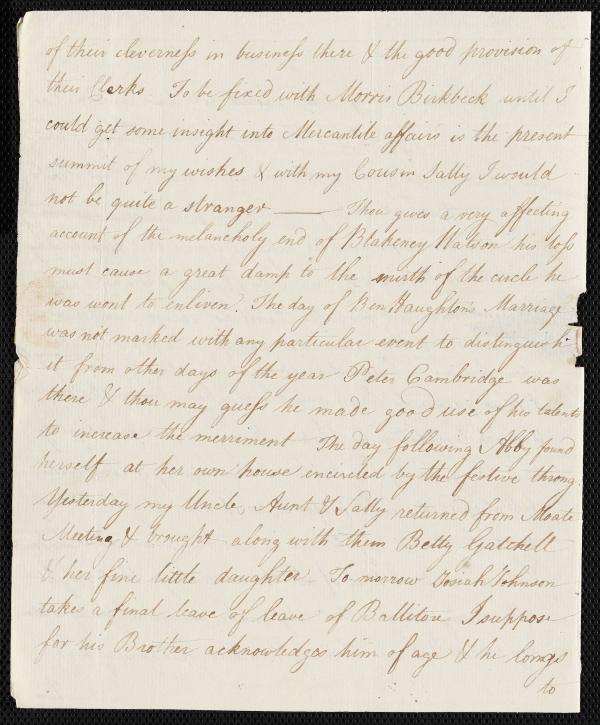 of their cleverness in business there & the good provision of
their Clerks. To be fixed with Morris Birkbeck until I
could get some insight into Mercantile affairs is the present
summit of my wishes & with my Cousin Sally I would
not be quite a stranger —— Thou gives a very affecting
account of the melancholy end of Blakeney Watson his loss
must cause a great damp to the mirth of the circle he
was wont to enliven. The day of Ben Haughton's Marriage
was not marked with any particular event to distinguish
it from other days of the year Peter Cambridge was
there & thou may guess he made good use of his talents
to increase the merriment The day following Abby found
herself at her own house encircled by the festive throng.
Yesterday my Uncle, Aunt & Sally returned from Moate
Meeting & brought along with them Betty Gatchell
& her fine little daughter. To morrow Josiah Johnson
takes a final leave of leave of Ballitore I suppose
for his Brother acknowledges him of age & he longs
to